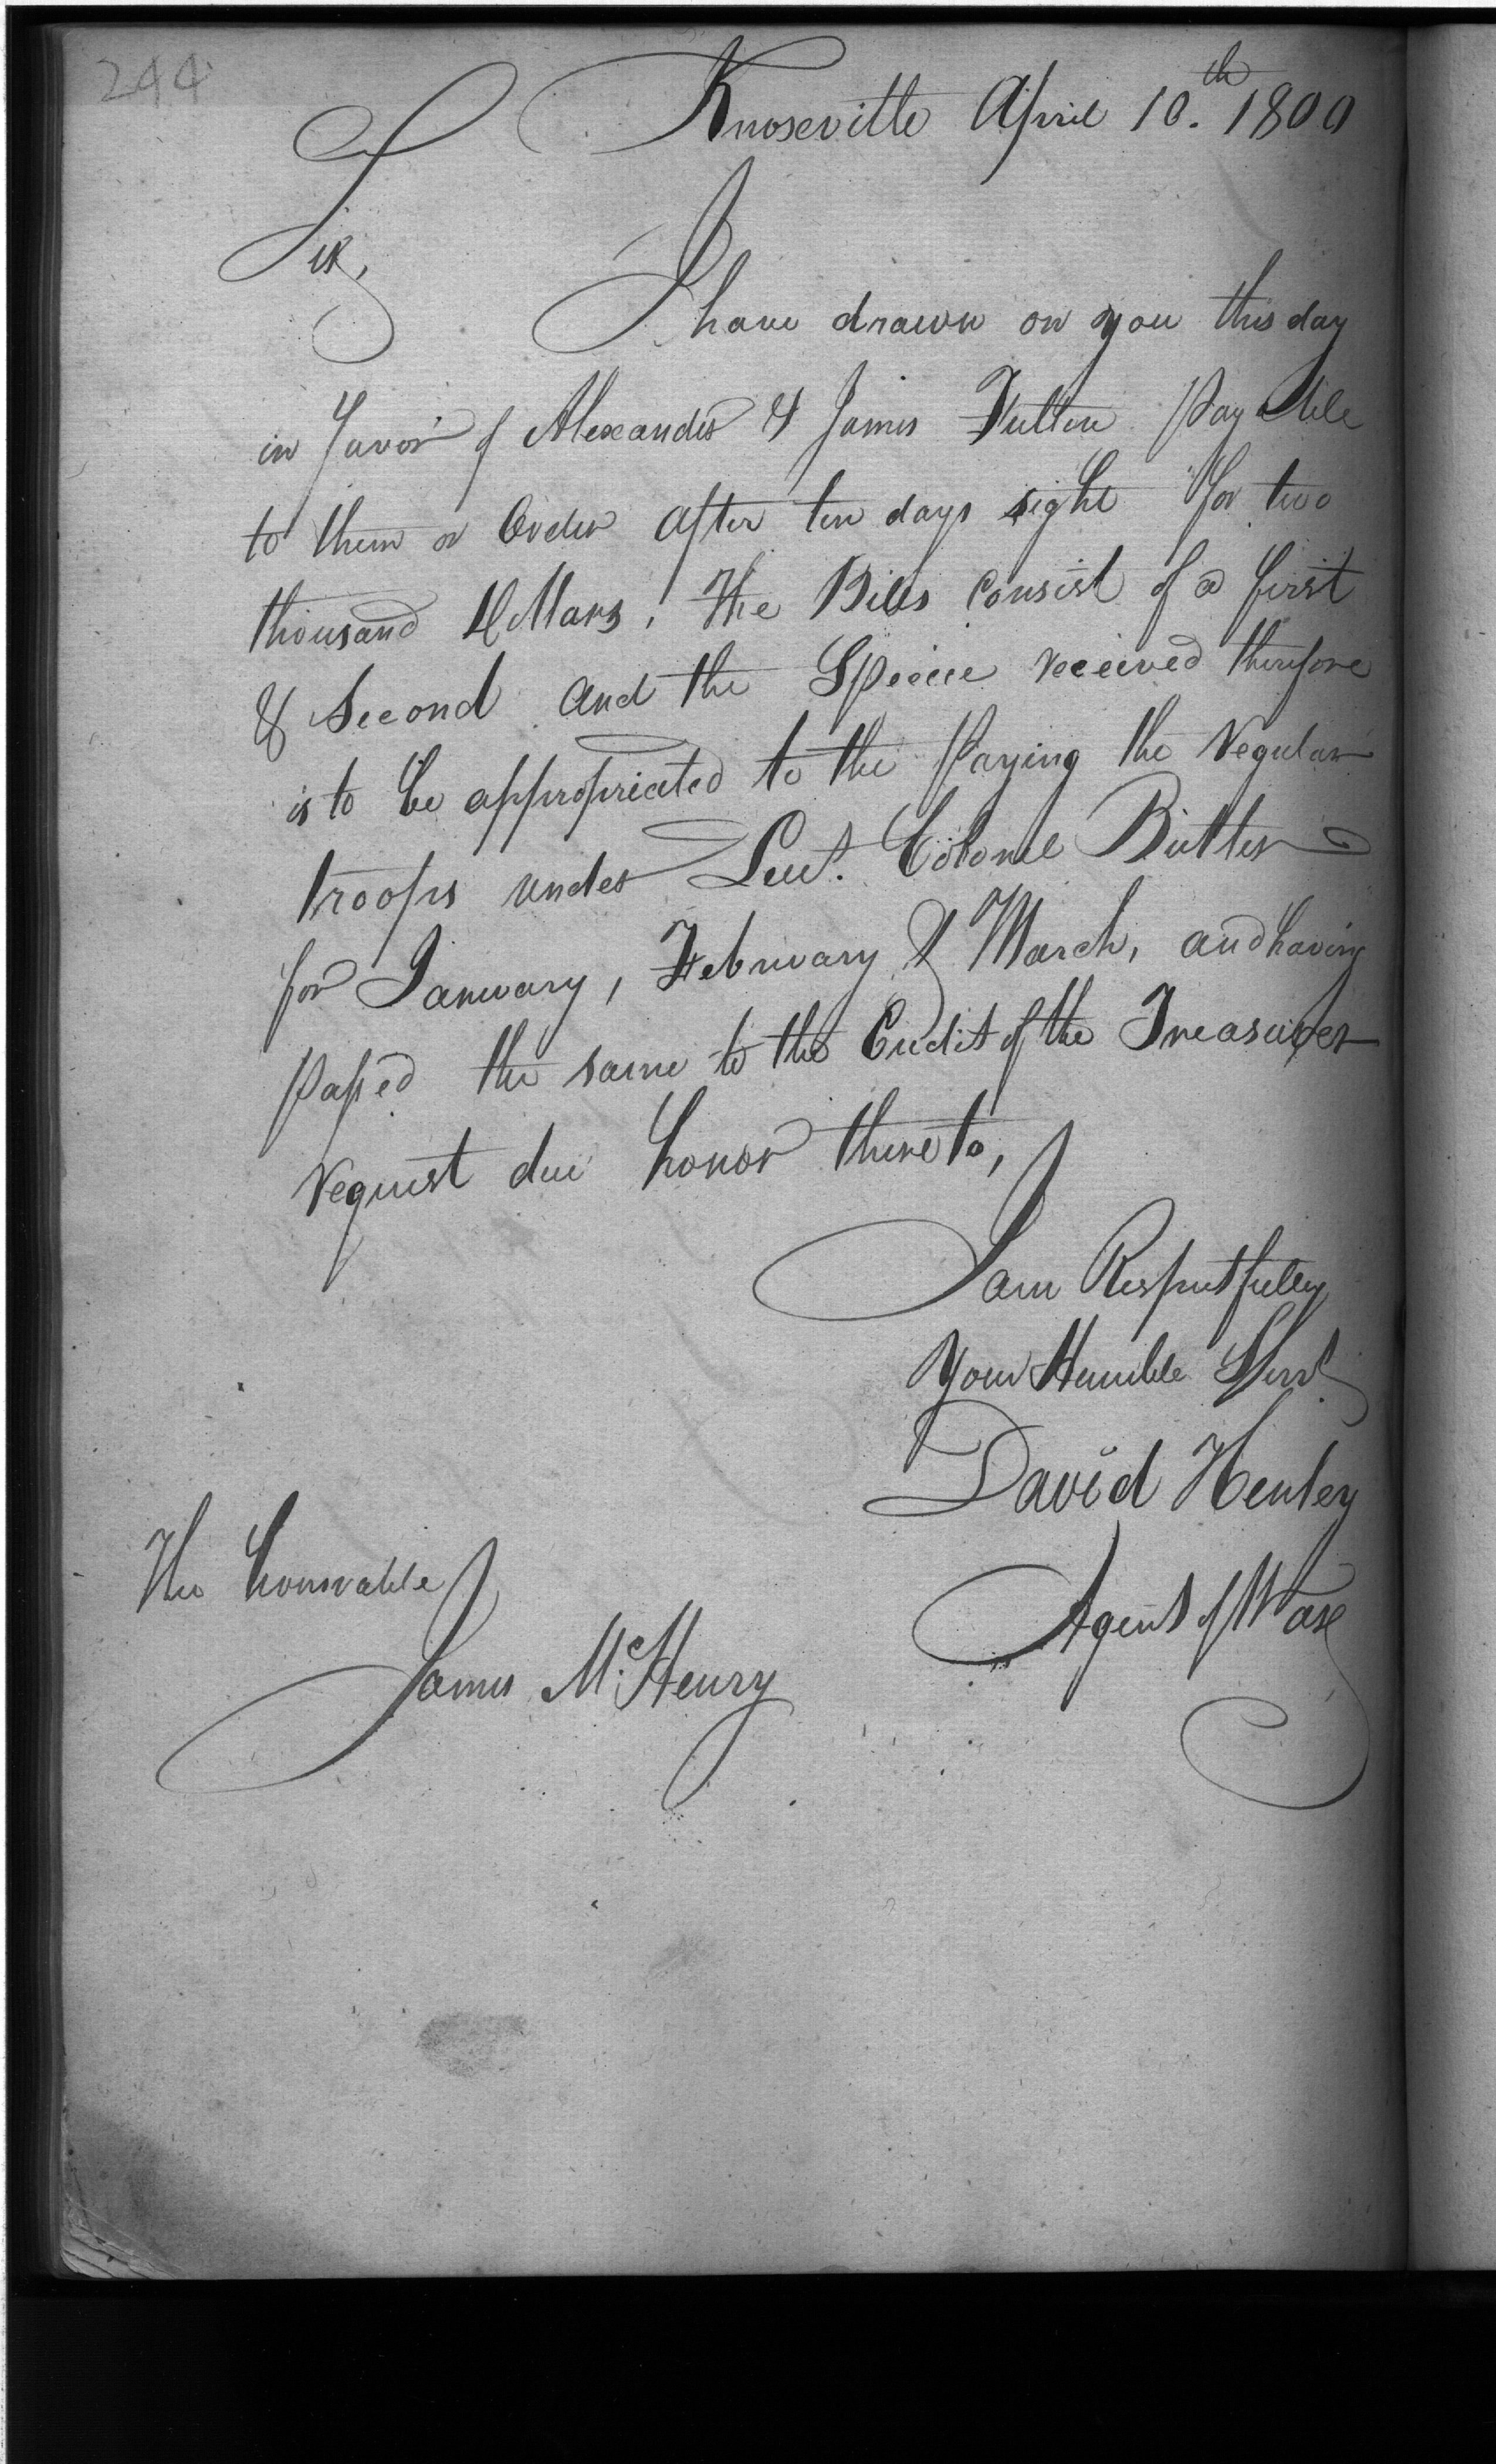 244
Knoxville April 10.th 1800
Sir,
I have drawn on you this day
in favor of Alexander & James Fulton Payable
to them or Order after ten days sight for two
thousand Dollars, The Bills Consist of a first
& Second and the Specie received therefore
is to be appropriated to the Paying the regular
troops under Lieut. Colonel Butler
for January, February & March, and having
passed the same to the Credit of the Treasurer
request due honor thereto,
I am Respectfully
Your Humble Servt
David Henley
Agent of War
The honorable
James McHenry